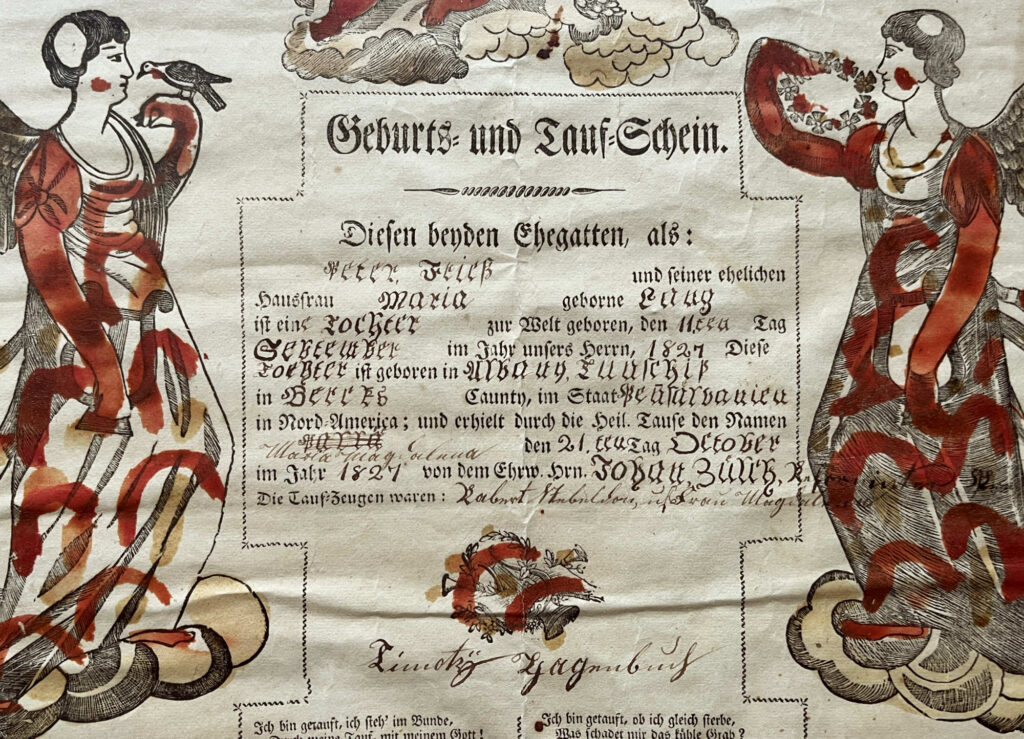 Geburts- und Tauf-Schein.
Diesen beyden Ehegatten, als:
Peter Frieß und seiner ehelichen
Hausfrau Maria geborne Lang
ist eine Tochter zur Welt geboren, den 11ten Tag
September im Jahr unsers Herrn, 1827 Diese
Tochter ist geboren in Albany Taunschip
in Bercks Caunty, im Staat Pensilvanien
in Nord-America; und erhielt durch die Heil. Taufe den Namen
Maria Magdalena den 21.ten Tag October
im Jahr 1827 von dem Ehrw. Hrn. Johan Zülch,
Die Tauf-Zeugen waren: u Frau
Timotÿ Hagenbuch
Ich bin getauft, ich steh' im Bunde,
Durch meine Tauf, mit meinem Gott!
Ich bin getauft, ob ich gleich sterbe,
Was schadet mir das kühle Grab?